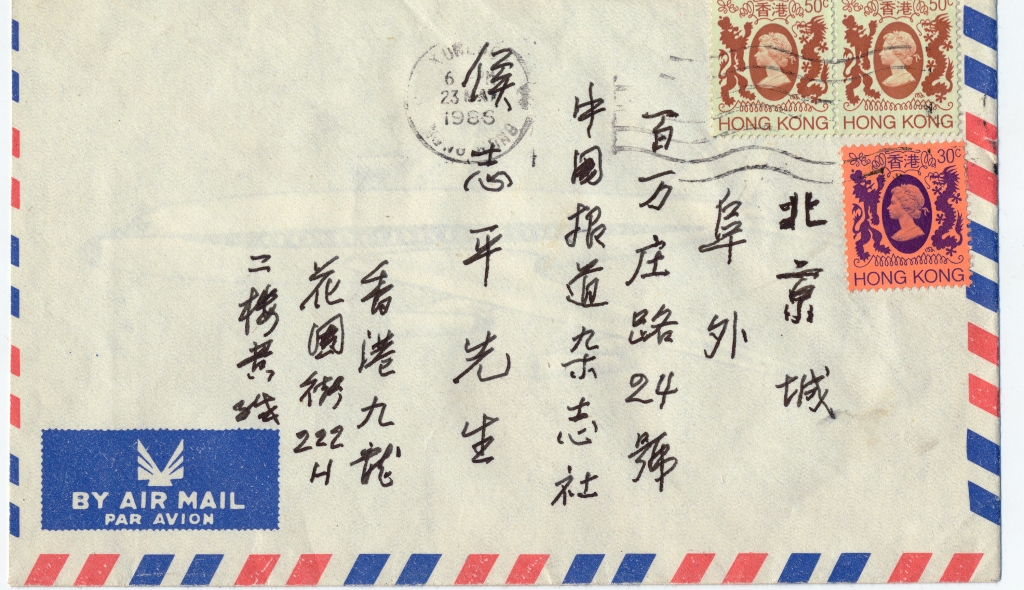 香港 50c
HONG KONG
香港 50c
HONG KONG
香港 30c
HONG KONG
6
23 MAY
1986
北京城
阜外
百万庄路24號
中國报道杂志社
侯志平先生
香港九龍
花園街222H
二楼
BY AIR MAIL
PAR AVION